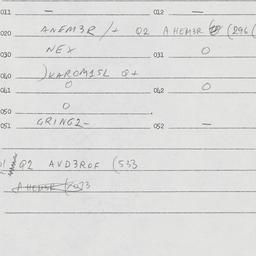 011 — 012 —
020 ANEM3R /+ Q2 AHEM3R (296(
030 NEX 031 O
040 )KAROM15L Q+
041 O 042 O
050 O
051 GRING2- 052 —
Q2 AVD3ROF (533